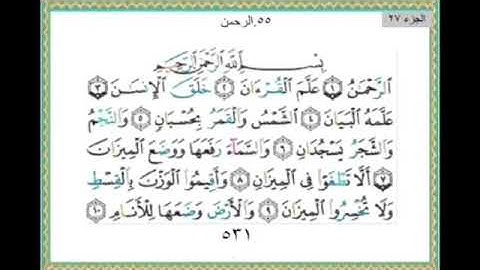 الجزء ٢٧
٥٥.الرحمن
بِسْمِ ٱللَّهِ ٱلرَّحْمَٰنِ ٱلرَّحِيمِ
ٱلرَّحْمَٰنُ ١ عَلَّمَ ٱلْقُرْءَانَ ٢ خَلَقَ ٱلْإِنسَٰنَ ٣
عَلَّمَهُ ٱلْبَيَانَ ٤ ٱلشَّمْسُ وَٱلْقَمَرُ بِحُسْبَانٍ ٥ وَٱلنَّجْمُ
وَٱلشَّجَرُ يَسْجُدَانِ ٦ وَٱلسَّمَآءَ رَفَعَهَا وَوَضَعَ ٱلْمِيزَانَ
٧ أَلَّا تَطْغَوْا۟ فِى ٱلْمِيزَانِ ٨ وَأَقِيمُوا۟ ٱلْوَزْنَ بِٱلْقِسْطِ
وَلَا تُخْسِرُوا۟ ٱلْمِيزَانَ ٩ وَٱلْأَرْضَ وَضَعَهَا لِلْأَنَامِ ١٠
٥٣١